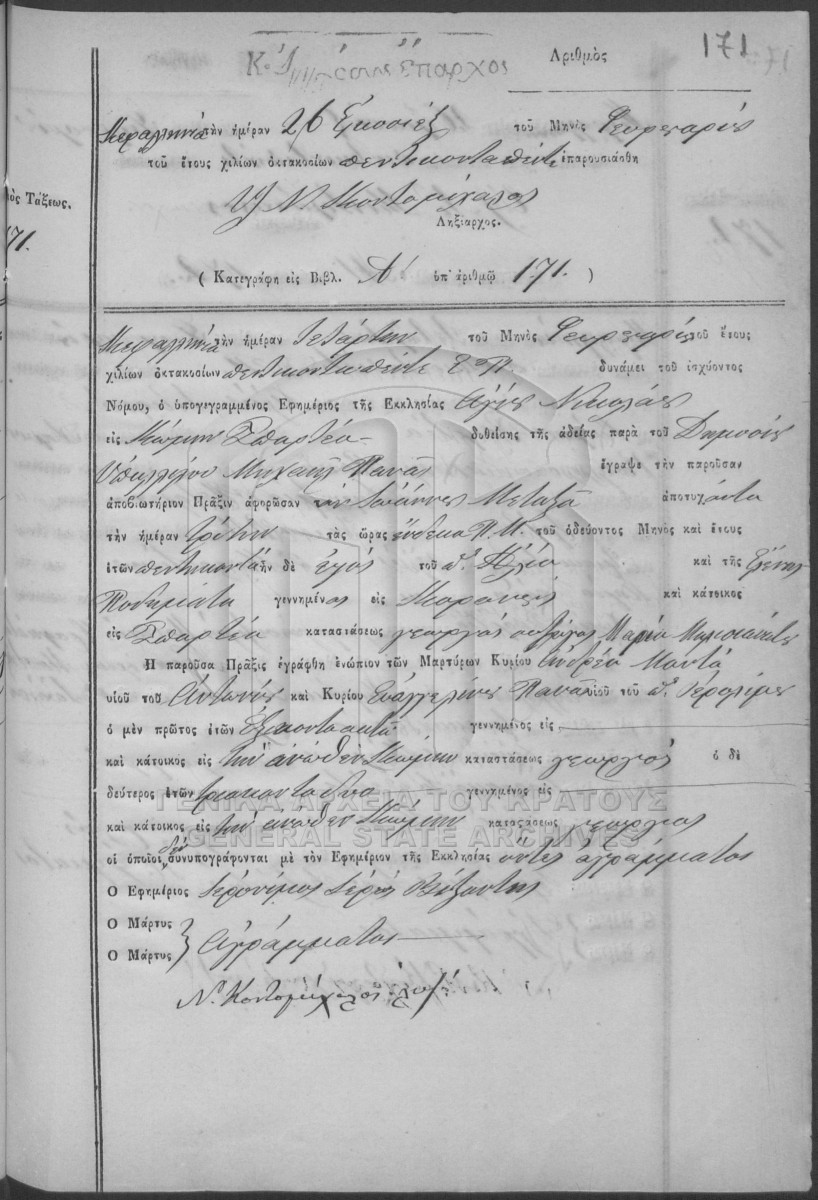 Ἀριθμὸς 171
ἔπαρχος
Κεφαλληνία τὴν ἡμέραν 26 Εἴκοσι ἓξ τοῦ Μηνὸς Φευρουαρίου
τοῦ ἔτους χιλίων ὀκτακοσίων πεντήκοντα πέντε ἐπαρουσιάσθη
Ν. Κοντομίχαλος
Ληξίαρχος.
ὸς Τάξεως.
171.
( Κατεγράφη εἰς Βιβλ. Α' ὑπ' ἀριθμῷ 171. )
Κεφαλληνία τὴν ἡμέραν Τετάρτην τοῦ Μηνὸς Φευρουαρίου τοῦ ἔτους
χιλίων ὀκτακοσίων πεντήκοντα πέντε Ε.Π. δυνάμει τοῦ ἰσχύοντος
Νόμου, ὁ ὑπογεγραμμένος Ἐφημέριος τῆς Ἐκκλησίας Ἁγίου Νικολάου
εἰς Κώμην Σπαρτέα δοθείσης τῆς ἀδείας παρὰ τοῦ Δημοσίου
Ὑπαλλήλου Μιχαὴλ Πανᾶ ἔγραψε τὴν παροῦσαν
ἀποβιωτήριον Πρᾶξιν ἀφορῶσαν τὸν Ἰωάννην Μεταξᾶ ἀποτυχόντα
τὴν ἡμέραν Τρίτην τὰς ὥρας ἕνδεκα Π.Μ. τοῦ ὁδεύοντος Μηνὸς καὶ ἔτους
ἐτῶν πεντήκοντα ἦν δὲ υἱὸς τοῦ π. Ἠλία καὶ τῆς Ἑλένης
Ποδηματᾶ γεννημένος εἰς Κορωνούς καὶ κάτοικος
εἰς Σπαρτέα καταστάσεως γεωργὸς σύζυγος Μαρία
Ἡ παροῦσα Πρᾶξις ἐγράφθη ἐνώπιον τῶν Μαρτύρων Κυρίου Ἀνδρέα
υἱοῦ τοῦ Ἀντωνίου καὶ Κυρίου Εὐαγγελίνου Πανᾶ υἱοῦ τοῦ π. Ἱερολίμου
ὁ μὲν πρῶτος ἐτῶν ἑξήκοντα ὀκτὼ γεννημένος εἰς
καὶ κάτοικος εἰς τὴν ἄνωθεν Κώμην καταστάσεως γεωργὸς ὁ δὲ
δεύτερος ἐτῶν τριάκοντα δύο γεννημένος εἰς
καὶ κάτοικος εἰς τὴν ἄνωθεν Κώμην καταστάσεως γεωργὸς
οἱ ὁποῖοι δὲν συνυπογράφονται μὲ τὸν Ἐφημέριον τῆς Ἐκκλησίας ὄντες ἀγράμματοι
Ὁ Ἐφημέριος Ἱερώνυμος Ἱερεὺς
Ὁ Μάρτυς } Ἀγράμματοι
Ὁ Μάρτυς
Ν. Κοντομίχαλος
ΓΕΝΙΚΑ ΑΡΧΕΙΑ ΤΟΥ ΚΡΑΤΟΥΣ
GENERAL STATE ARCHIVES